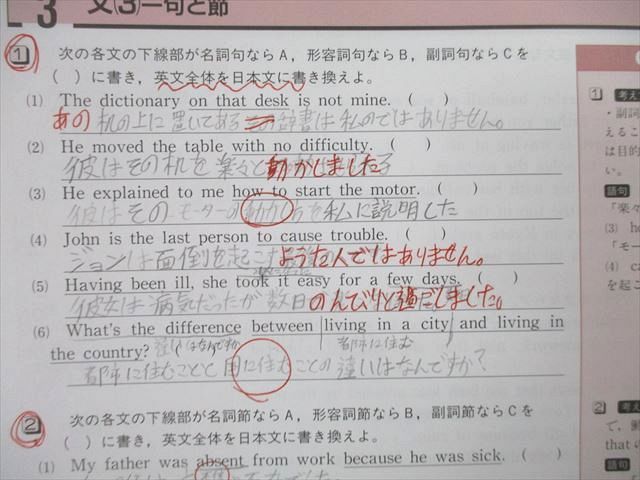 3 文(3)—句と節
1 次の各文の下線部が名詞句ならA，形容詞句ならB，副詞句ならCを
（ ）に書き，英文全体を日本文に書き換えよ。
(1) The dictionary on that desk is not mine. ( )
あの机の上に置いてある辞書は私のではありません。
(2) He moved the table with no difficulty. ( )
彼はその机を楽々と動かしました
(3) He explained to me how to start the motor. ( )
彼はそのモーターの動かし方を私に説明した
(4) John is the last person to cause trouble. ( )
ジョンは面倒を起こすようなんではありません。
(5) Having been ill, she took it easy for a few days. ( )
彼女は病気だったが数日のんびりと過ごしました。
(6) What's the difference between living in a city and living in
the country? ( 違いはなんですか 都市に住む
都市に住むことと国に住むことの違いはなんですか？
2 次の各文の下線部が名詞節ならA，形容詞節ならB，副詞節ならCを
（ ）に書き，英文全体を日本文に書き換えよ。
(1) My father was absent from work because he was sick. ( )
1 考え
・副詞
えるこ
は目的
い。
語句
「楽々
(3) ho
「モー
(4) ca
を起こ
2 考え
で，動
that の
語句